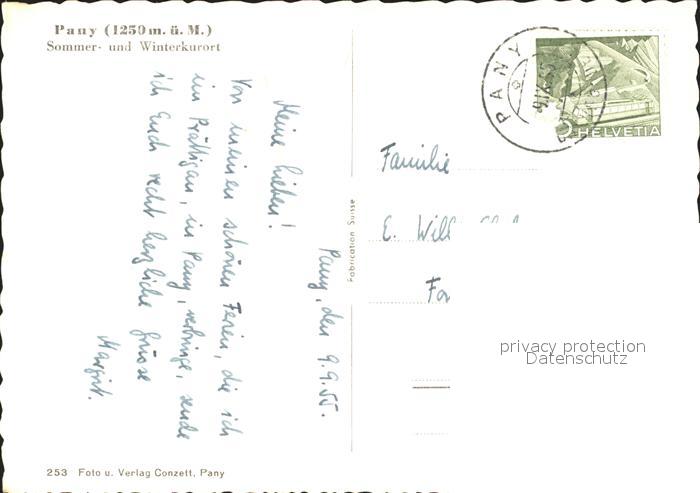 Pany (1250 m. ü. M.)
Sommer- und Winterkurort
Pany, den 9.9.55.
Meine Lieben!
Von meinen schönen Ferien, die ich
im Prättigau, in Pany, verbringe, sende
ich Euch recht herzliche Grüsse
Margrit.
253 Foto u. Verlag Conzett, Pany
Fabrication Suisse
PANY
5 HELVETIA
Familie
E. Will
privacy protection
Datenschutz